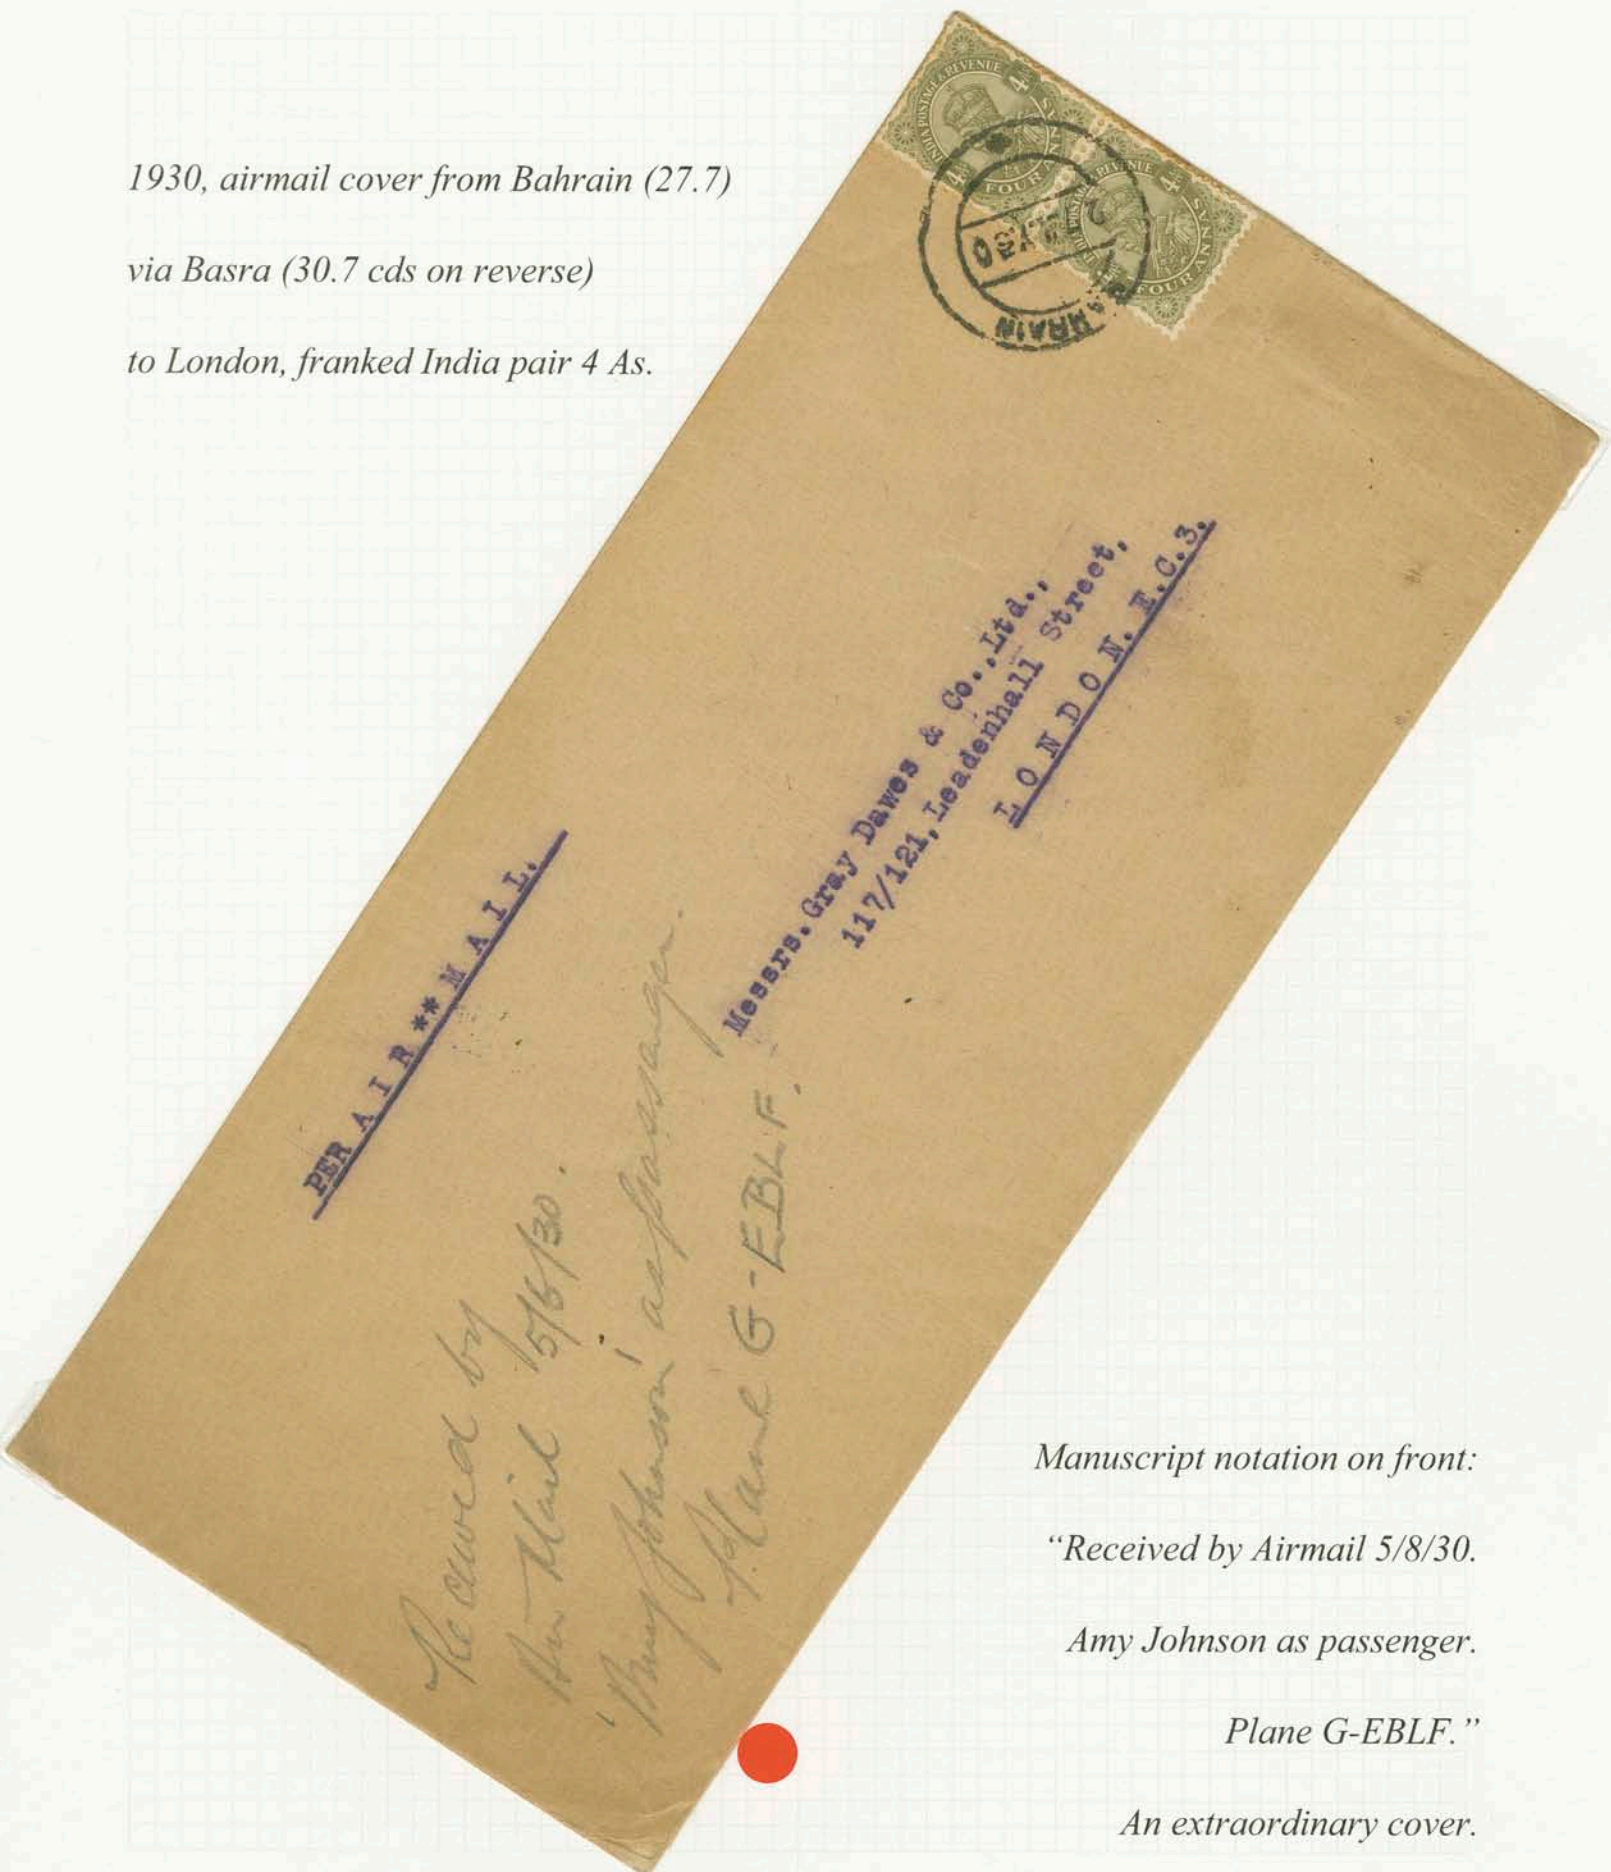 1930, airmail cover from Bahrain (27.7)
via Basra (30.7 cds on reverse)
to London, franked India pair 4 As.
INDIA POSTAGE & REVENUE
4
4
FOUR ANNAS
INDIA POSTAGE & REVENUE
4
FOUR ANNAS
BAHRAIN
PER A I R ** M A I L.
Messrs. Gray Dawes & Co., Ltd.,
117/121, Leadenhall Street,
L O N D O N. E.C.3.
Received by
Air Mail 5/8/30.
'Amy Johnson' as passenger.
Plane G-EBLF.
Manuscript notation on front:
“Received by Airmail 5/8/30.
Amy Johnson as passenger.
Plane G-EBLF.”
An extraordinary cover.